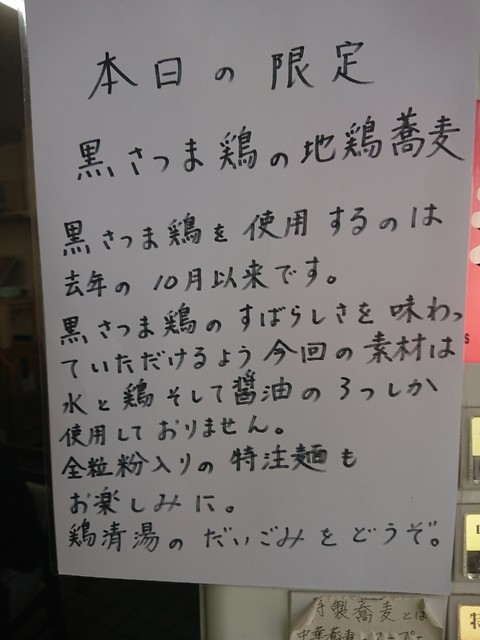 本日の限定
黒さつま鶏の地鶏蕎麦
黒さつま鶏を使用するのは
去年の10月以来です。
黒さつま鶏のすばらしさを味わっ
ていただけるよう今回の素材は
水と鶏そして醤油の3つしか
使用しておりません。
全粒粉入りの特注麺も
お楽しみに。
鶏清湯のだいごみをどうぞ。
特製蕎麦とは
中華蕎麦